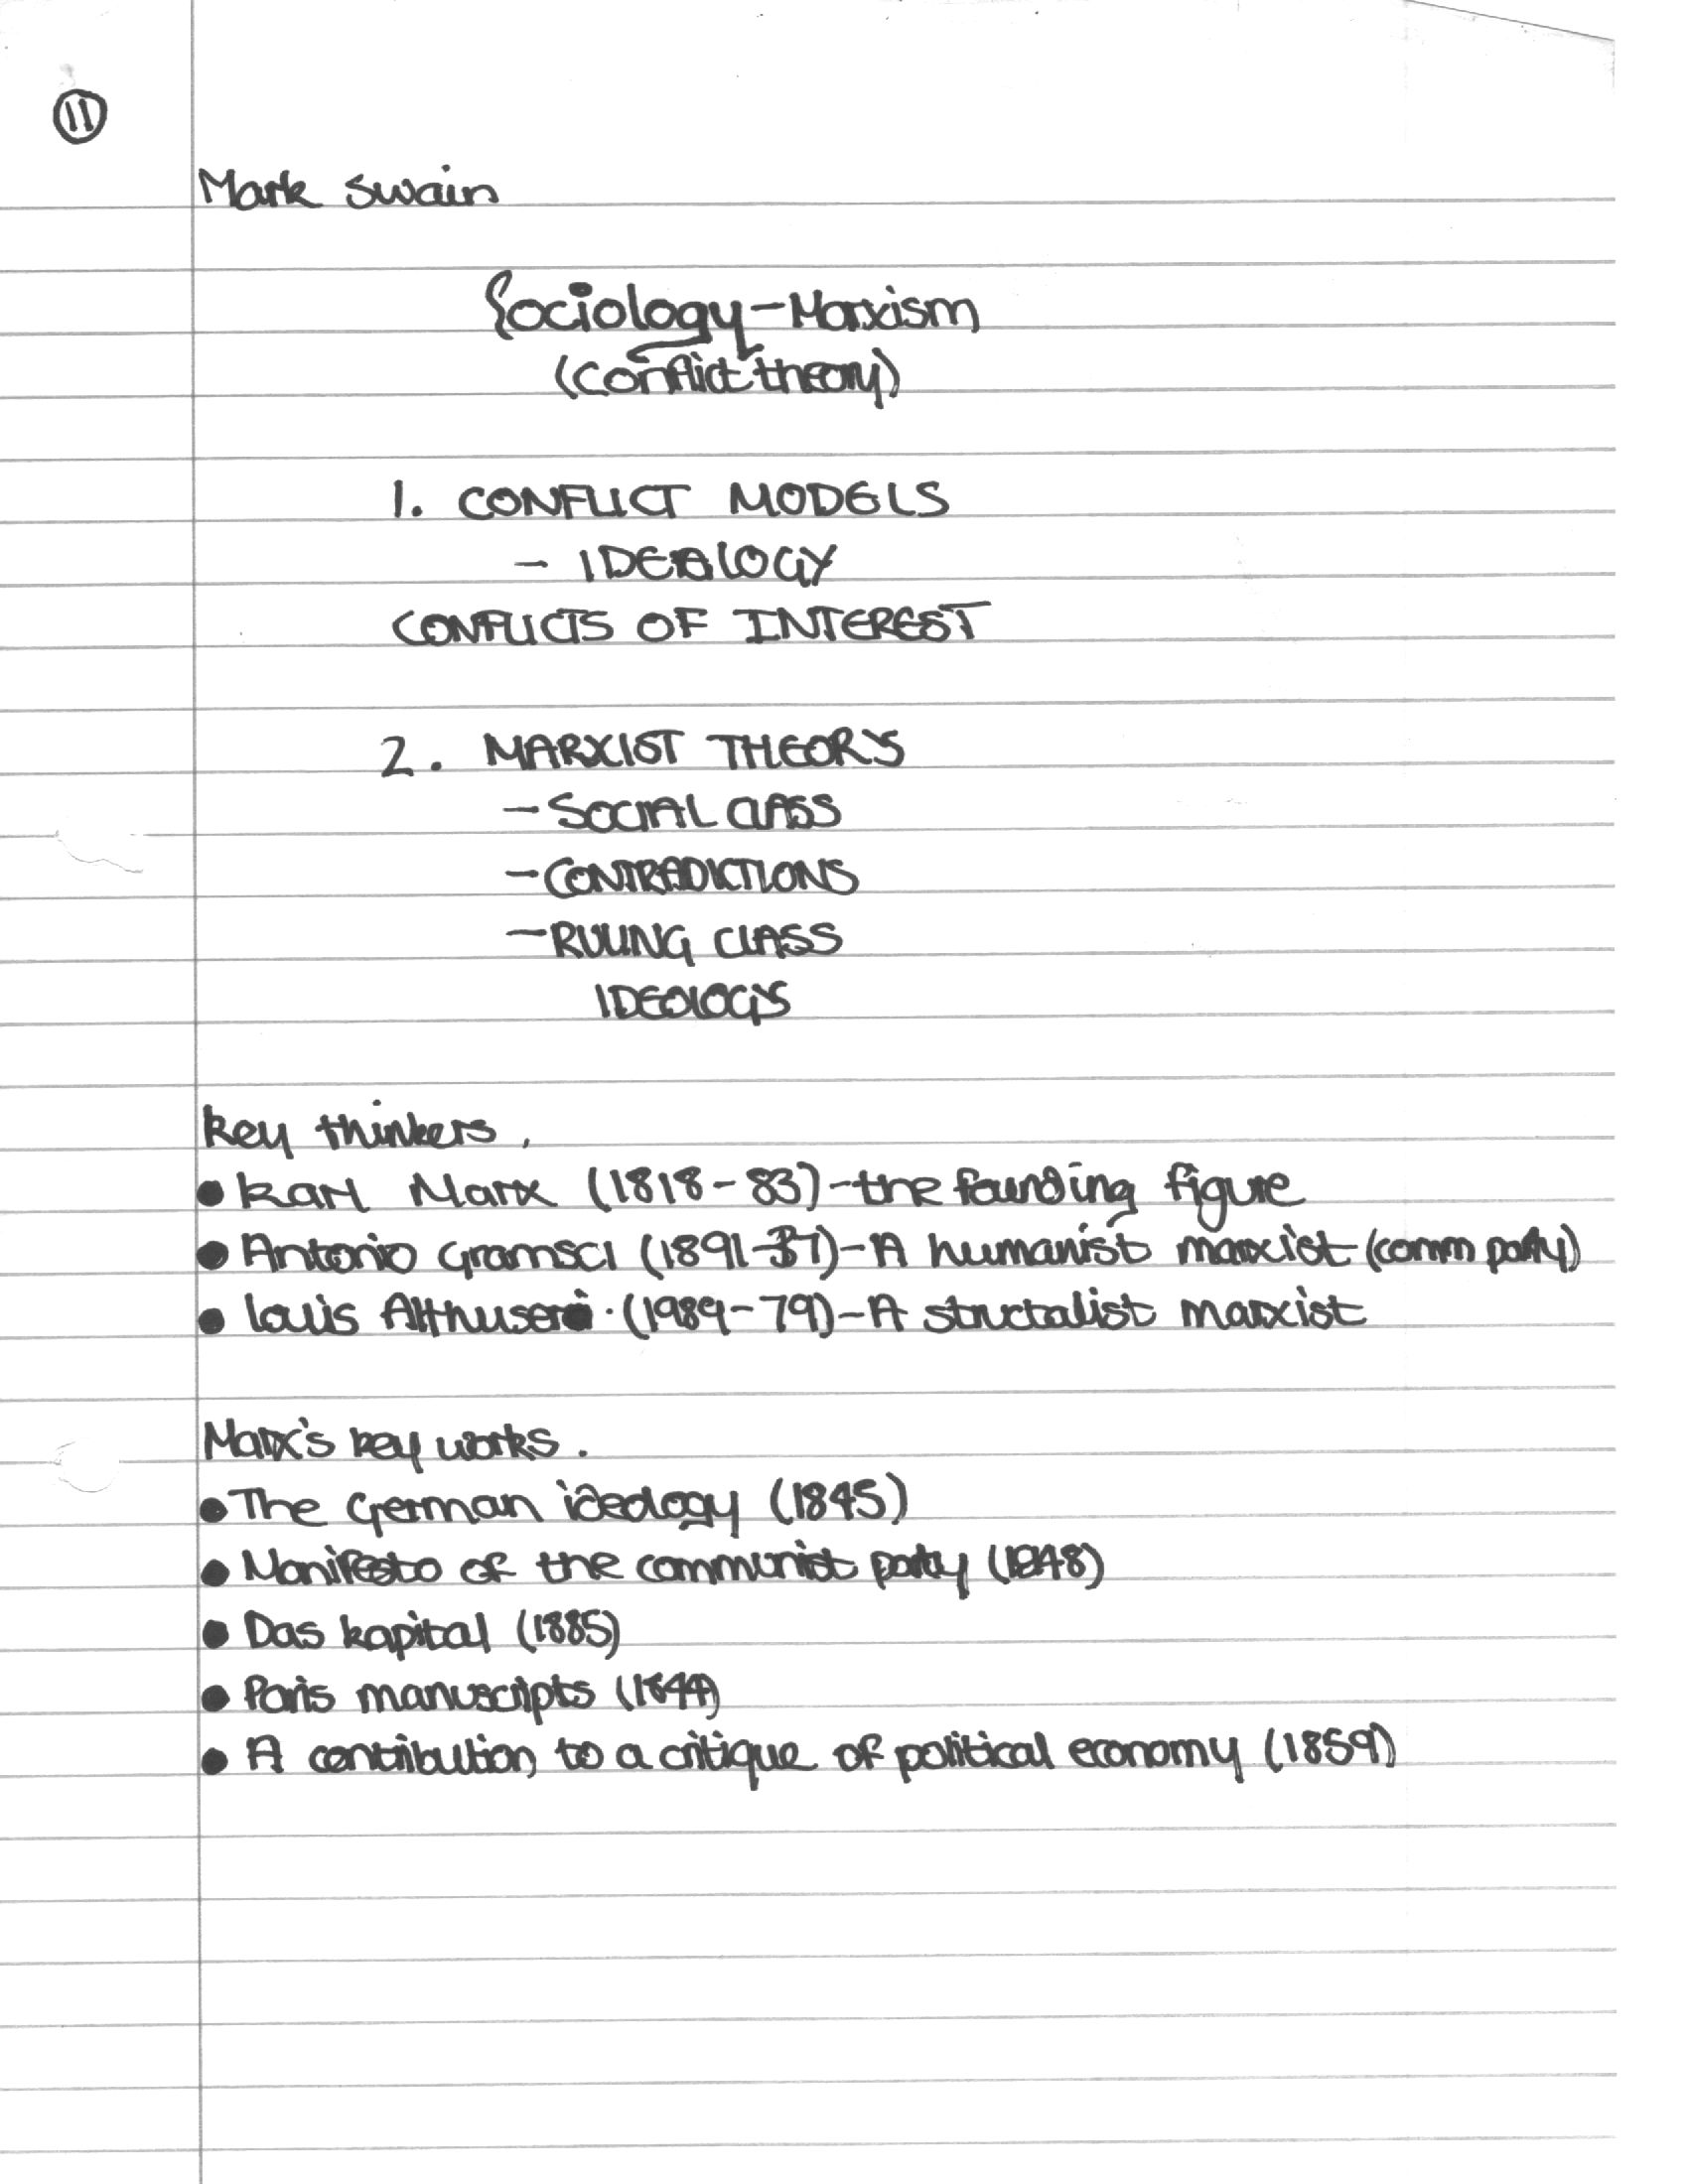 11
Mark Swain
Sociology - Marxism
(Conflict theory)
1. CONFLICT MODELS
- IDEALOGY
CONFLICTS OF INTEREST
2. MARXIST THEORY
- SOCIAL CLASS
- CONTRADICTIONS
- RULING CLASS
IDEOLOGY
Key thinkers.
• Karl Marx (1818-83) - the founding figure
• Antonio Gramsci (1891-37) - A humanist marxist (comm party)
• Louis Althuser (1989-79) - A structalist marxist
Marx's key works.
• The German ideology (1845)
• Manifesto of the communist party (1848)
• Das kapital (1885)
• Paris manuscripts (1844)
• A contribution to a critique of political economy (1859)